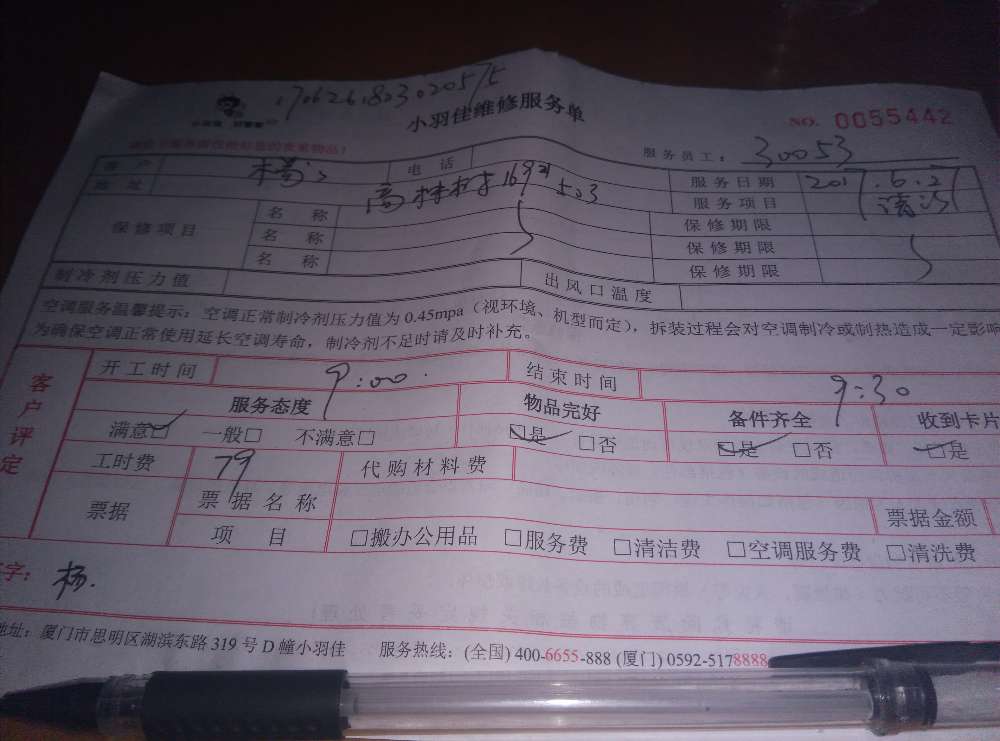 1706261803020575
小羽佳维修服务单
NO. 0055442
服务员工: 30053
客户 电话 服务日期 2017.6.27
地址 高林村169号503 服务项目 清洗
保修项目 名称 保修期限
名称 保修期限
名称 保修期限
制冷剂压力值 出风口温度
空调服务温馨提示:空调正常制冷剂压力值为0.45mpa(视环境、机型而定),拆装过程会对空调制冷或制热造成一定影响
为确保空调正常使用延长空调寿命,制冷剂不足时请及时补充。
客户评定
开工时间 9:00 结束时间 9:30
服务态度 物品完好 备件齐全 收到卡片
满意□ 一般□ 不满意□ □是 □否 □是 □否 □是
工时费 79 代购材料费
票据 票据名称 票据金额
项目 □搬办公用品 □服务费 □清洁费 □空调服务费 □清洗费
字: 杨.
地址: 厦门市思明区湖滨东路319号D幢小羽佳 服务热线: (全国) 400-6655-888 (厦门) 0592-5178888